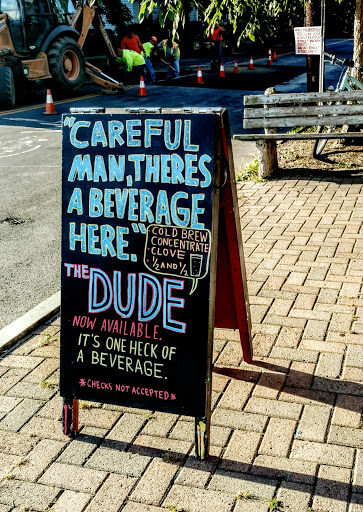 "CAREFUL
MAN, THERES
A BEVERAGE
HERE."
COLD BREW
CONCENTRATE
CLOVE
½ AND ½
THE DUDE
NOW AVAILABLE.
IT'S ONE HECK OF
A BEVERAGE.
*CHECKS NOT ACCEPTED*